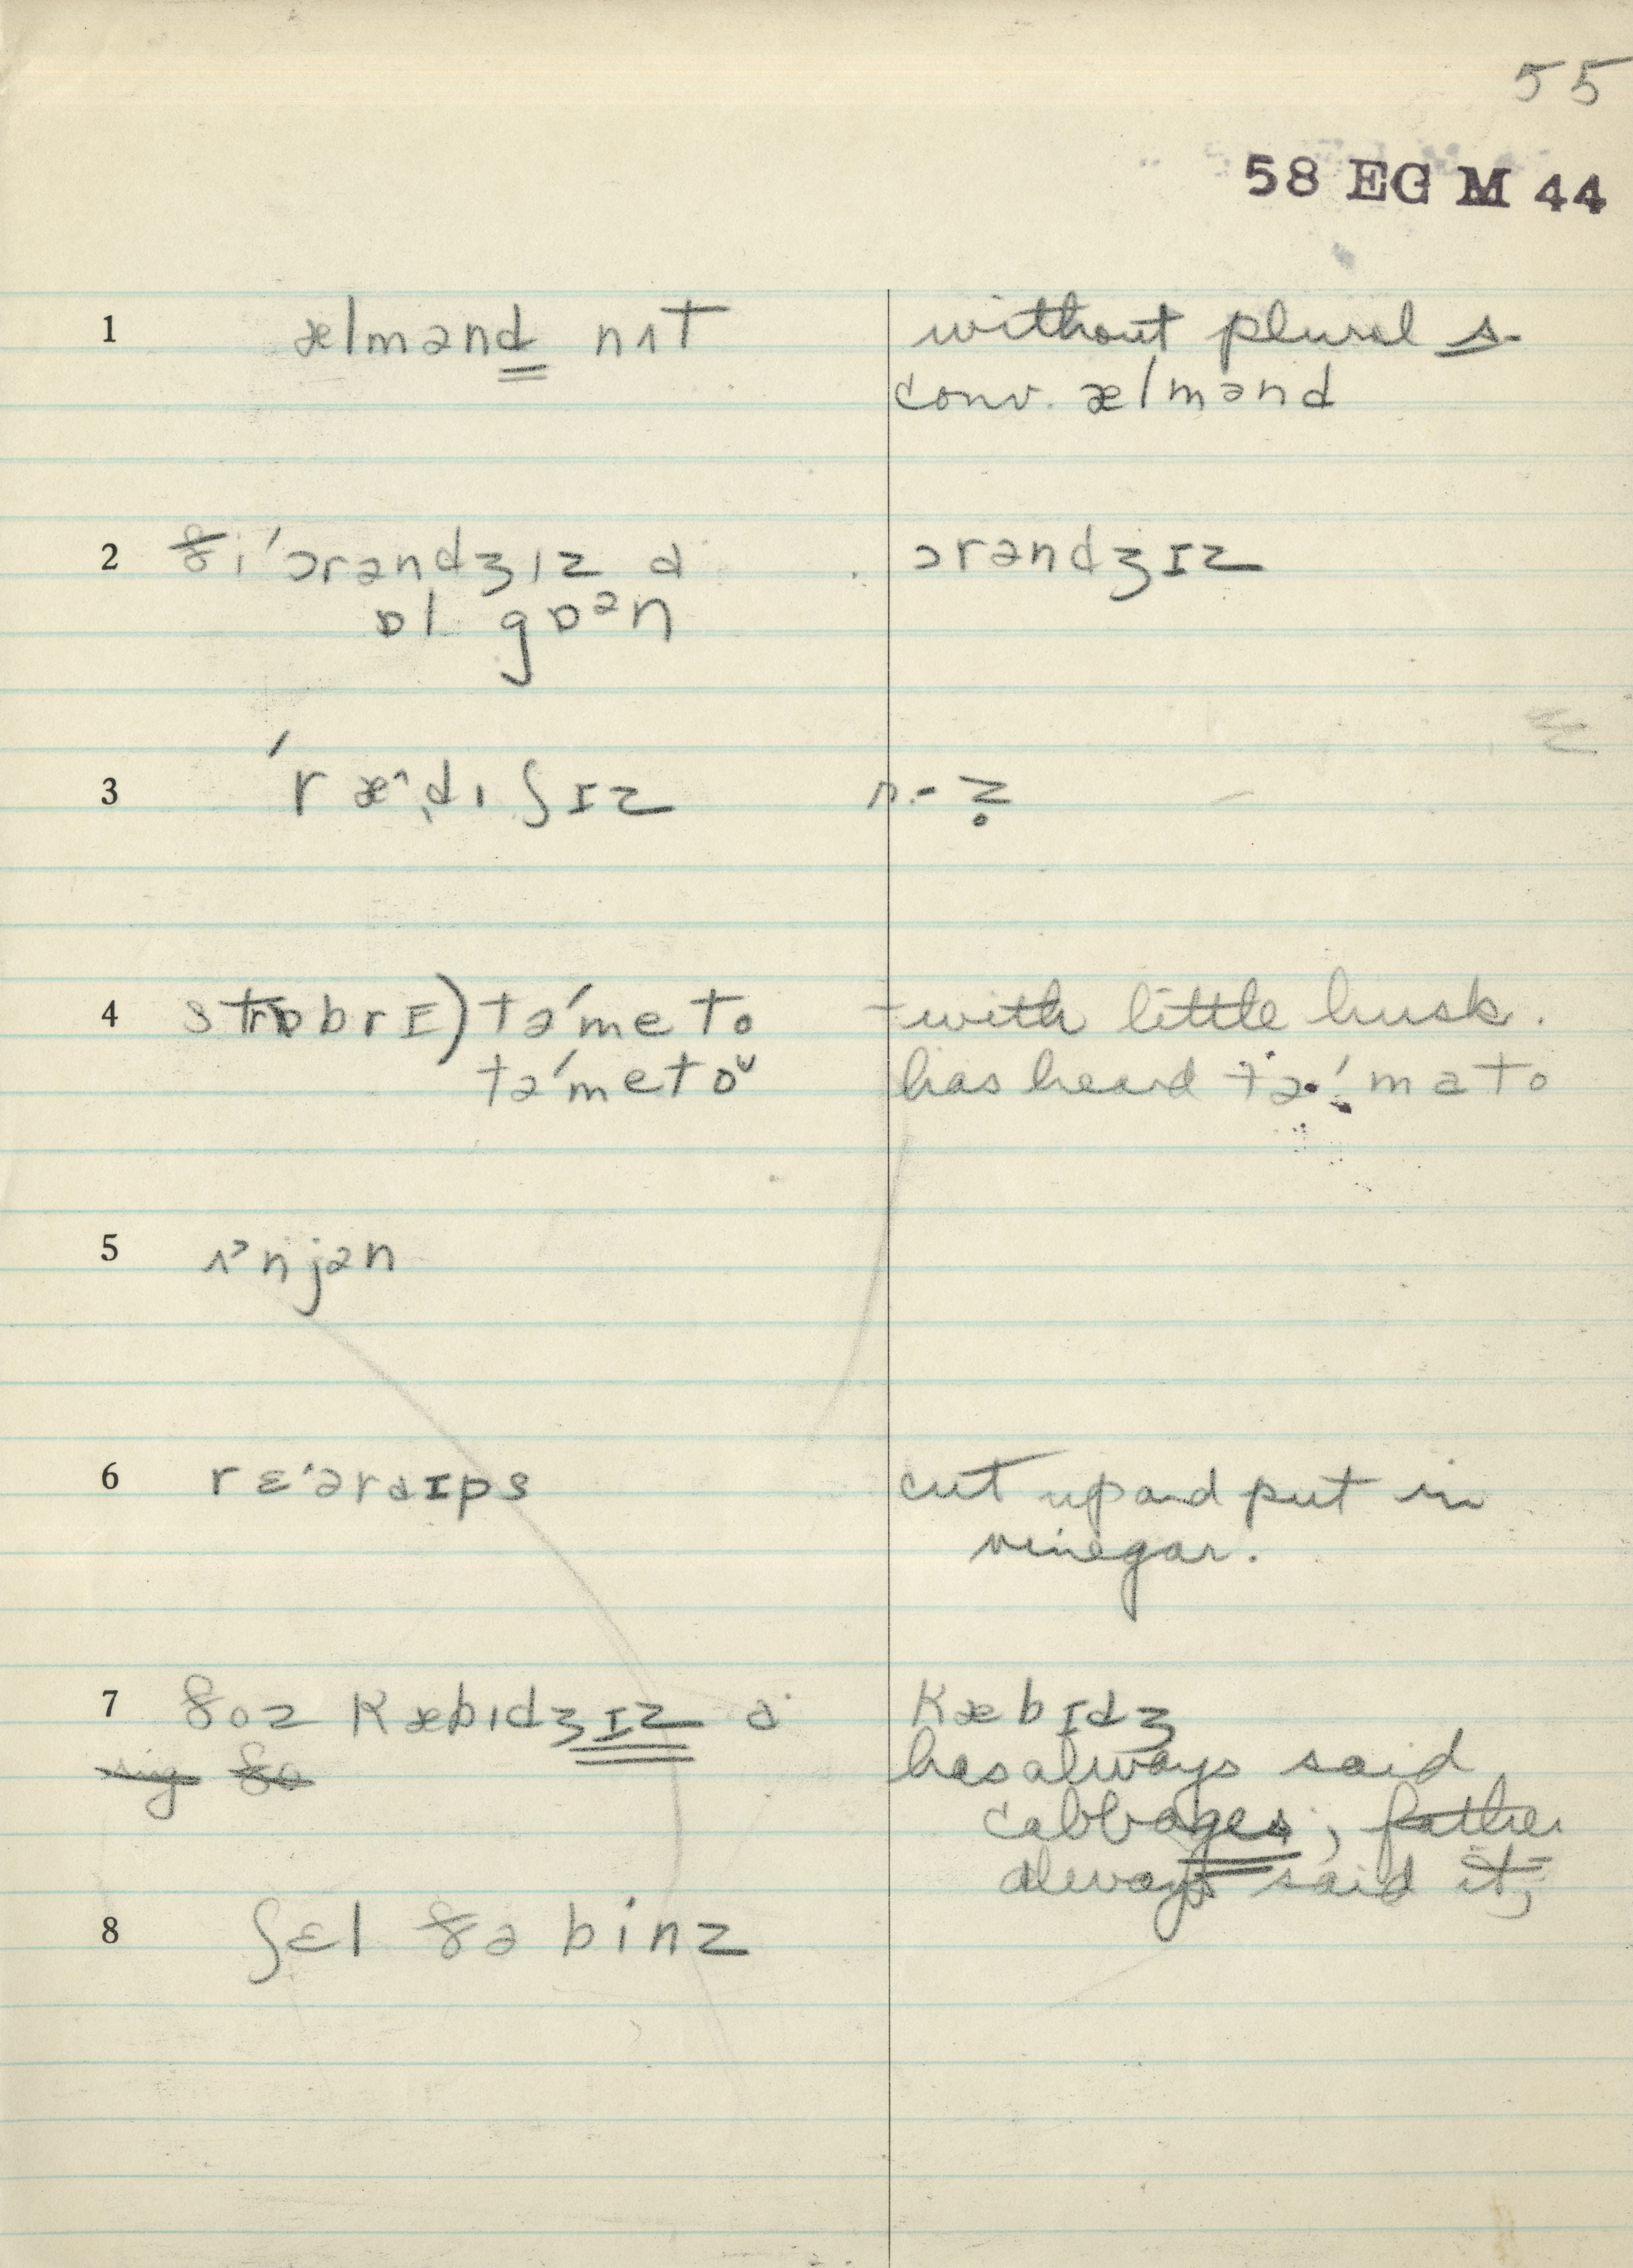 55
58 EG M 44
1 ælmənd nʌt
without plural s.
conv. ælmənd
2 ði ˈɔrəndʒɪz ɑ
ɒl gɒᵊn
ɔrəndʒɪz
3 ˈræ^dɪʃɪz
n.- z̥
4 strɒbrɪ) təˈmeto
təˈmetoᵁ
-with little husk.
has heard təˈmato
5 ʌˀnjən
6 rɛˈərɑɪps
cut up and put in
vinegar.
7 ðoz kæbɪdʒɪz ɑ
kæbɪdʒ
has always said
cabbages, father
always said it;
8 ʃɛl ðə binz